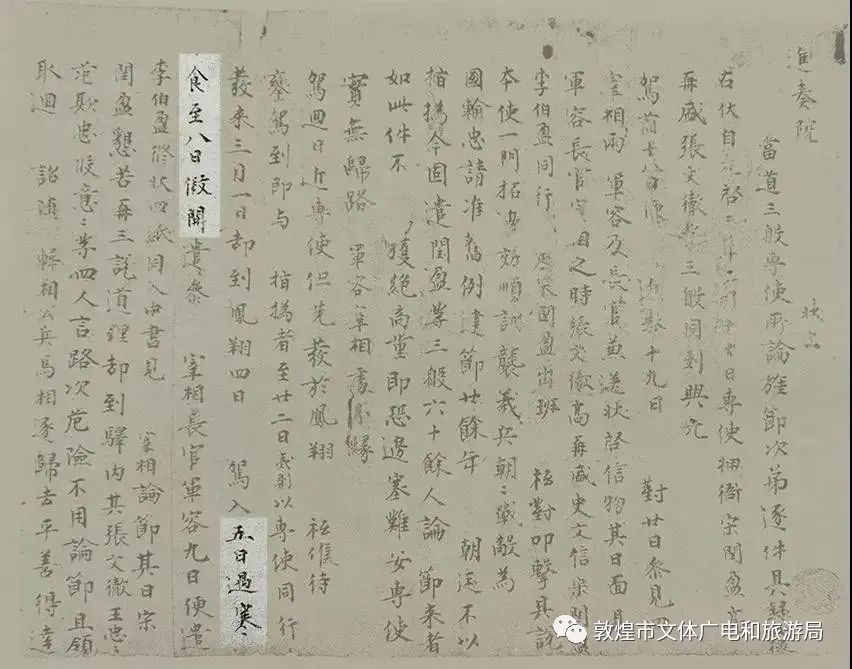 進奏院 狀上
當道三般專使所論旌節次第逐件具錄
右伏自光啓三年 日專使押衙宋閏盈高
再盛張文徹等三般同到興元
駕前十八日 十九日 對廿日參見
宰相兩軍容及長官兼送狀啓信物其日面見
軍容長官宰相之時張文徹高再盛史文信宋閏盈
李伯盈同行 宋閏盈出班 祗對叩擊具說
本使一門拓邊効順訓襲義兵朝〻戰敵爲
國輸忠請准舊例建節廿餘年 朝廷不以
指撝今因遣閏盈等三般六十餘人論節來者
如此件不 獲絕商量即恐邊塞難安專使
實無歸路 軍容宰相處分緣
駕迴日近專使但先發於鳳翔 祗候待
鑾駕到即與 指撝者至廿二日夷則以專使同行
發來三月一日却到鳳翔四日 駕入五日過寒
食至八日假開遣參 宰相長官軍容九日便遣
李伯盈修狀四紙同入中書見 宰相論節其日宋
閏盈懇苦再三說道理却到驛內其張文徹王忠〻
范欺忠段意〻等四人言路次危險不用論節且領
取迴 詔隨韓相公兵馬相逐歸去平善得達
敦煌市文体广电和旅游局